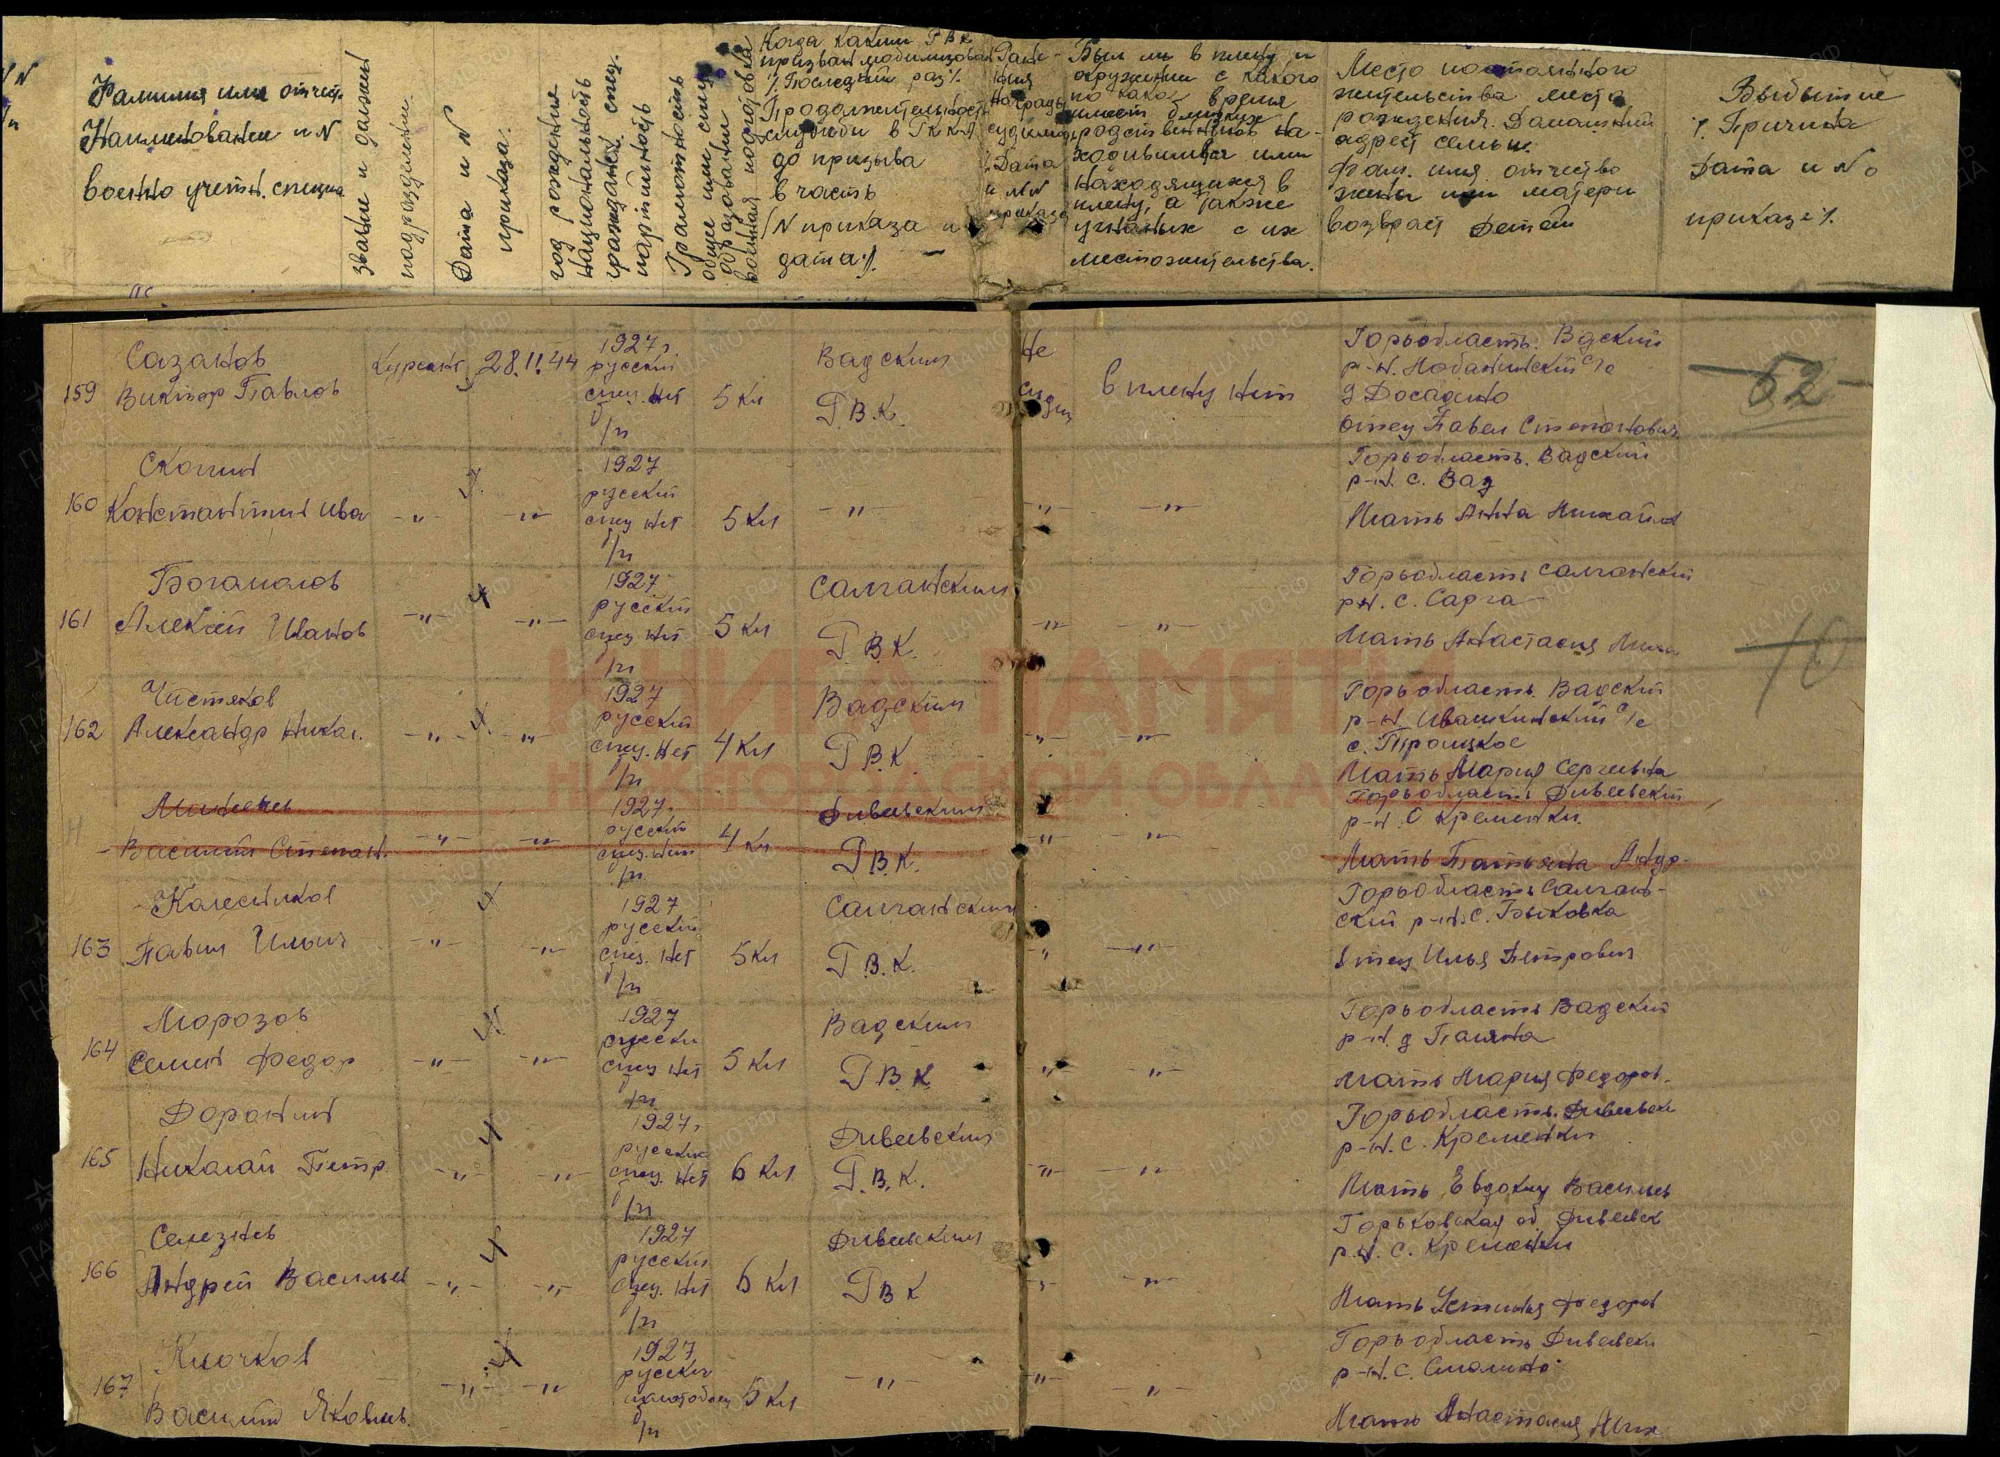 Фамилия имя отчест.
Наименование и N
военно учетн. специа
звание и должн
подразделени.
Дата и N
приказа.
год рождения
национальность
гражданск. спец.
партийность
Грамотность
общее или спец
образование
военная подготовка
Когда каким РВК
призван мобилизован
/. Последний раз /.
Продолжительность
службы в РККА
до призыва
в часть
/N приказа и
дата /.
Ране-
ния
Награды
судимость
Дата
и NN
приказа
Был ли в плену и
окружении с какого
по какое время
имеет близких
родственников на-
ходившихся или
находящихся в
плену, а также
угнанных с их
местожительства.
Место постоянного
жительства место
рождения. Домашний
адрес семьи.
Фам. имя отчество
жены или матери
возраст детей
Выбытие
/. Причина
дата и No
приказа /.
159 Сазанов
Виктор Павлов
Курсант 28.11.44
1927г
русский
спец. нет
б/п
5 кл
Вадским
РВК.
Не
судим
в плену нет
Горьобласть. Вдский
р-н. Лобанинский с/с
д Досадино
отец Павел Степанович
52
160 Скопин
Константин Ива
-"- -"-
1927
русский
спец нет
б/п
5 кл
-"-
-"- -"-
Горьобласть. Вадский
р-н. с. Вад
Мать Анна Михайл
161 Богомолов
Алексей Иванов
-"- -"-
1927
русский
спец нет
б/п
5 кл
Салганским
Р.В.К.
-"- -"-
Горьобласть Салганский
рн. с. Сарга
Мать Анастасия Миха
10
162 Чистяков
Александр Никол.
-"- -"-
1927
русский
спец. нет
б/п
4 кл
Вадским
РВ.К
-"- -"-
Горьобласть. Вадский
р-н. Ивашкинский с/с
с. Троицкое
Мать Мария Сергеевна
Василий Степан.
-"- -"-
1927г
русский
спец. нет
б/п
4 кл
Дивеевским
РВ.К.
-"- -"-
Горьобласть Дивеевский
р-н. с Кременки.
Мать Татьяна Андр-
163 Колесников
Павел Ильич
-"- -"-
1927
русский
спец. нет
б/п
5 кл
Салганским
Р.В.К.
-"- -"-
Горьобласть Салган-
ский р-н. с. Быковка
Отец Илья Петрович
164 Морозов
Семен Федор
-"- -"-
1927
русски
спец нет
б/п
5 кл
Вадским
РВ.К
-"- -"-
Горьобласть Вадский
р-н. д Паляна
Мать Мария Федоров.
165 Доронин
Николай Петр.
-"- -"-
1927г
русский
спец. нет
б/п
6 кл
Дивеевским
Р.В.К.
-"- -"-
Горьобласть. Дивеевск
р-н. с. Кременки
Мать Евдокия Васильев
166 Селезнев
Андрей Васильев
-"- -"-
1927
русский
спец. нет
б/п
6 кл
Дивеевским
РВК
-"- -"-
Горьковская об. Дивеевск
р.н. с. Кременки
Мать Устинья Федоров
167 Клочков
Василий Яковлев.
-"- -"-
1927
русский
молотобоец
б/п
5 кл
-"-
-"- -"-
Горьобласть Дивеевск
р-н. с. Смолино
Мать Анастасия Мих
КНИГА ПАМЯТИ
НИЖЕГОРОДСКОЙ ОБЛАСТИ